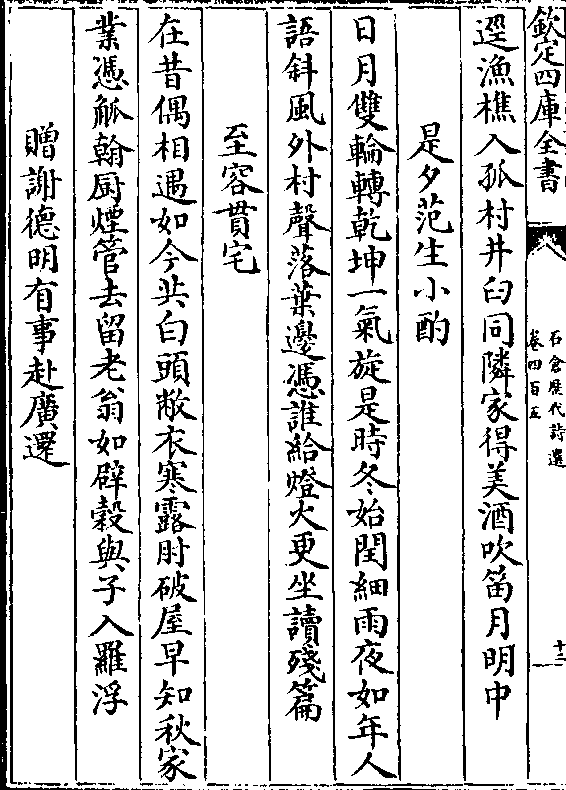 欽定四庫全書
石倉歷代詩選
卷四百五
十二
逕漁樵入孤村井臼同隣家得美酒吹笛月明中
是夕范生小酌
日月雙輪轉乾坤一氣旋是時冬始閏細雨夜如年人
語斜風外村聲落葉邊憑誰給燈火更坐讀殘篇
至容貫宅
在昔偶相遇如今共白頭敝衣寒露肘破屋早知秋家
業憑觚翰厨煙管去留老翁如辟穀與子入羅浮
贈謝德明有事赴廣還